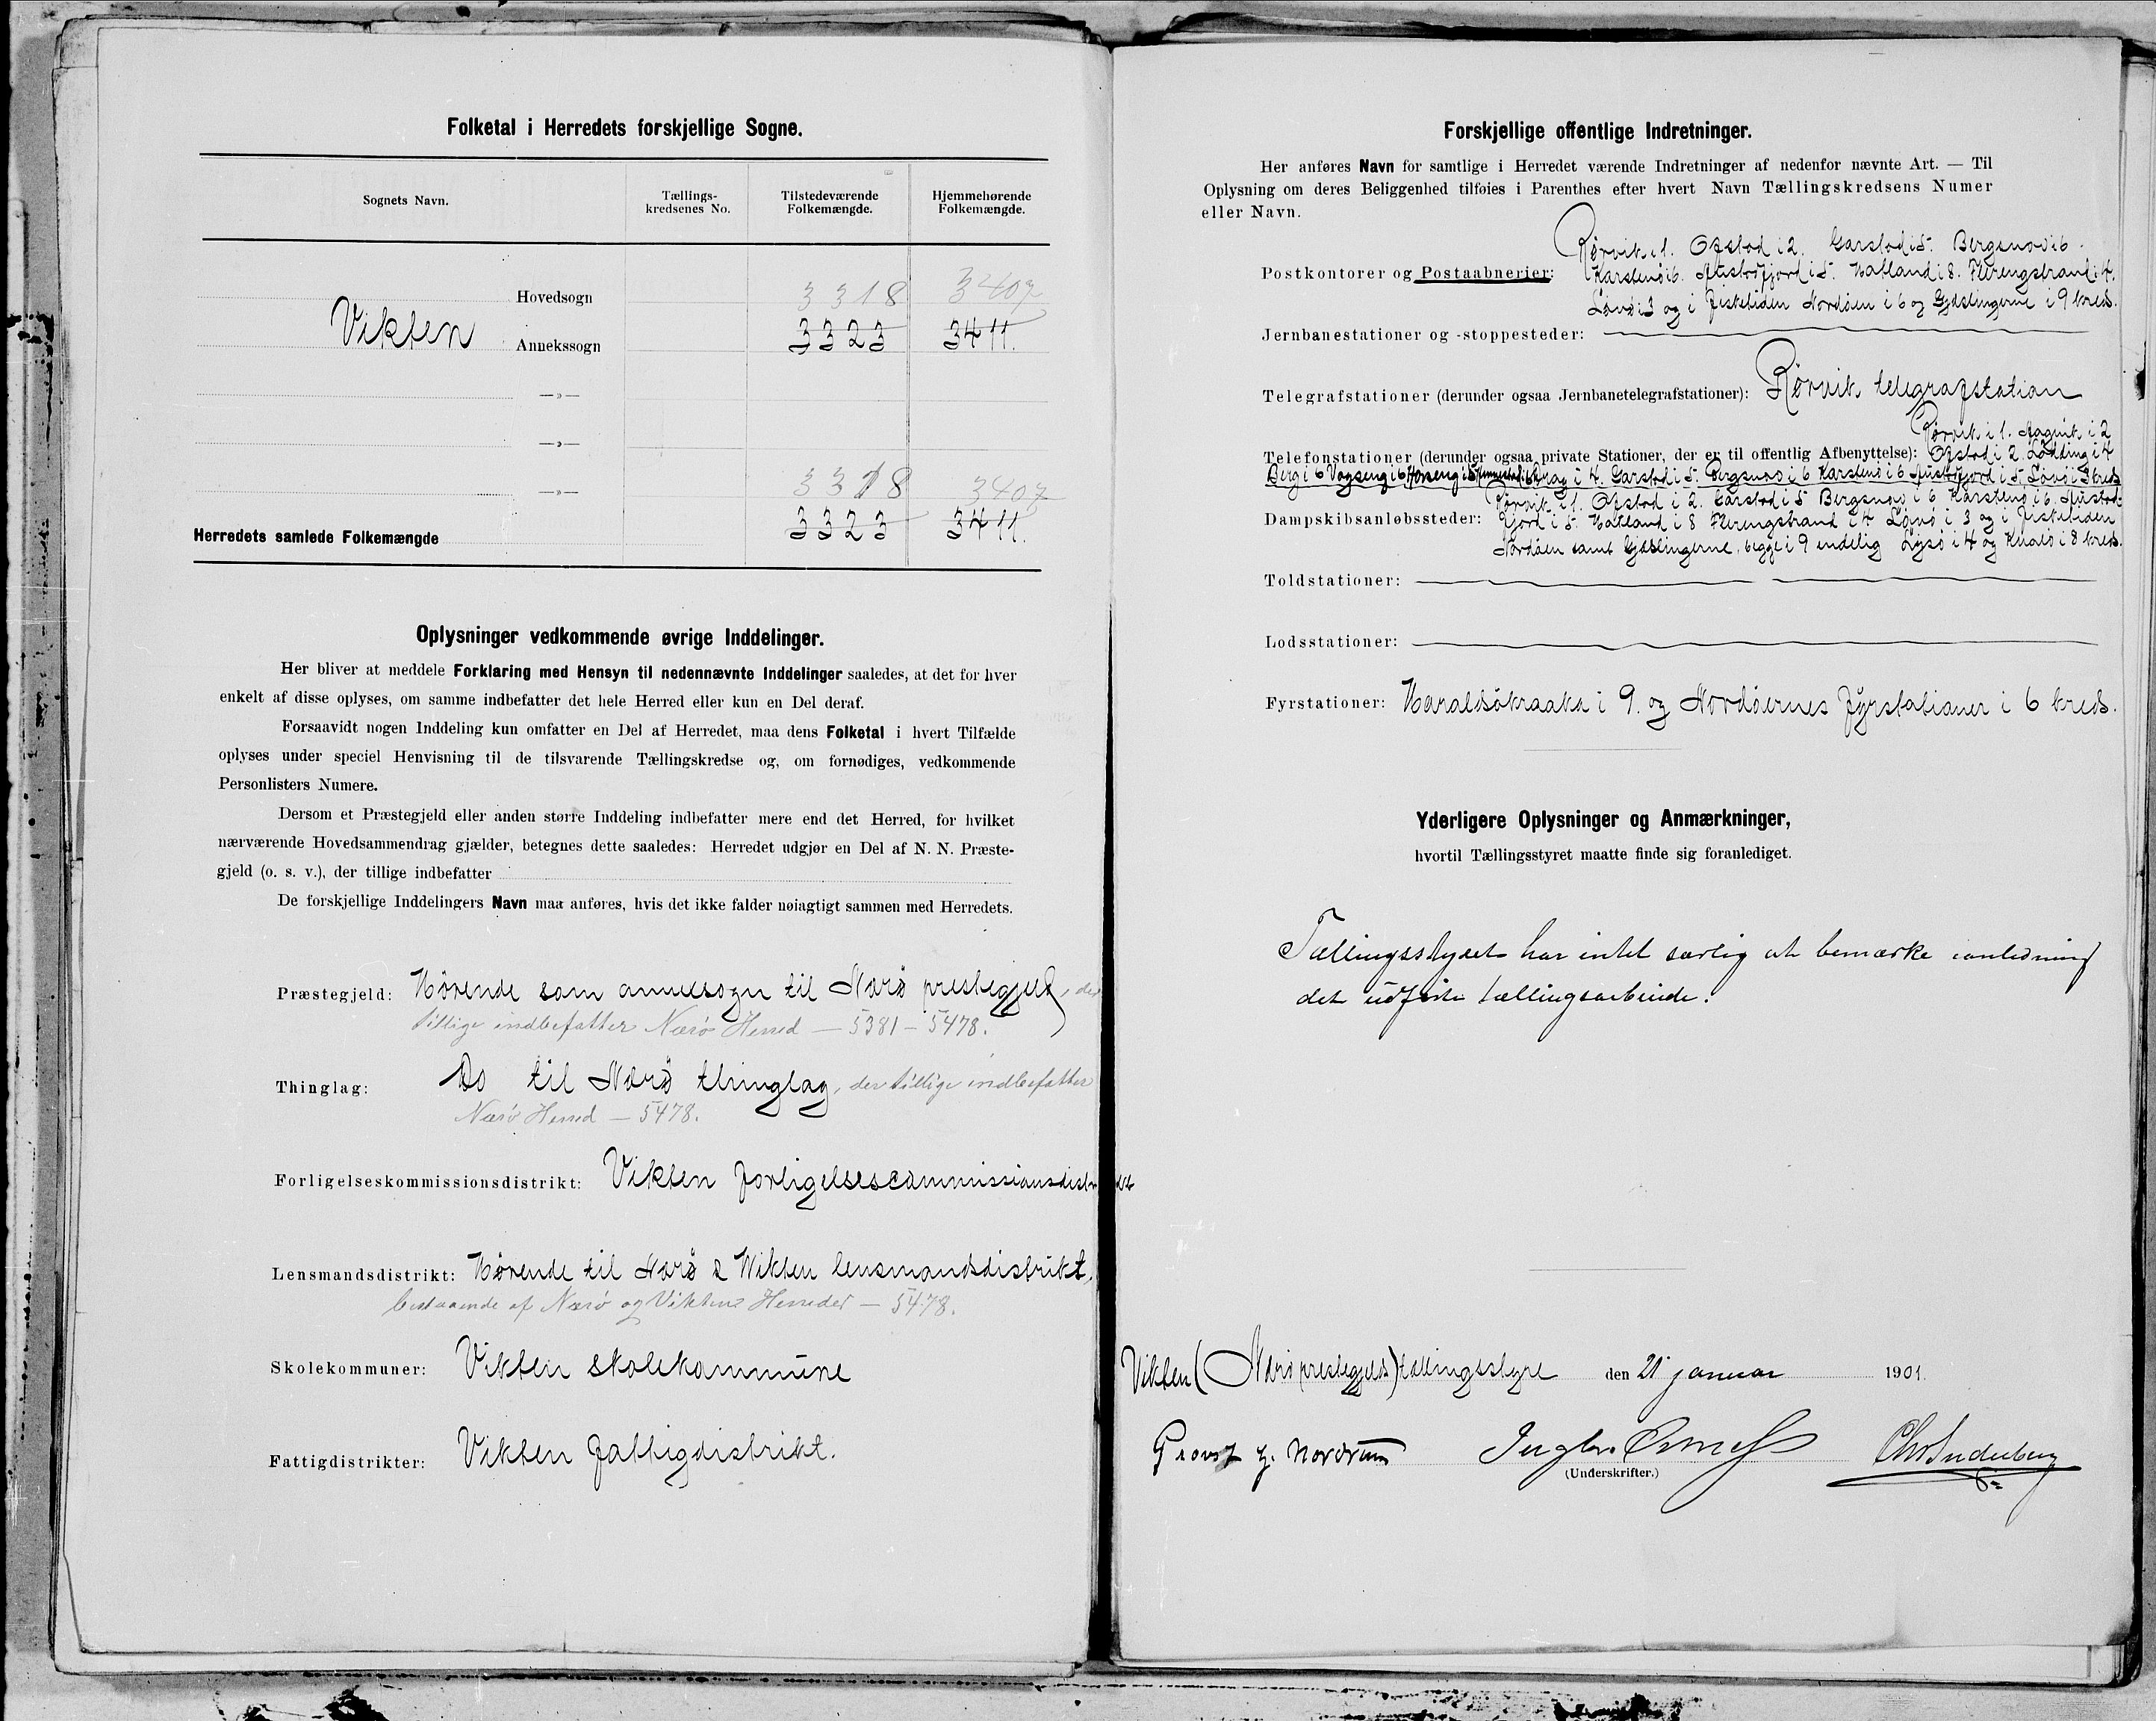 Folketal i Herredets forskjellige Sogne.
Sognets Navn.
Tællings-
kredsenes No.
Tilstedeværende
Folkemængde.
Hjemmehørende
Folkemængde.
Hovedsogn 3318 3407
Vikten Annekssogn 3323 3411.
—»—
—»—
—»— 3318 3407
Herredets samlede Folkemængde 3323 3411.
Oplysninger vedkommende øvrige Inddelinger.
Her bliver at meddele Forklaring med Hensyn til nedennævnte Inddelinger saaledes, at det for hver
enkelt af disse oplyses, om samme indbefatter det hele Herred eller kun en Del deraf.
Forsaavidt nogen Inddeling kun omfatter en Del af Herredet, maa dens Folketal i hvert Tilfælde
oplyses under speciel Henvisning til de tilsvarende Tællingskredse og, om fornødiges, vedkommende
Personlisters Numere.
Dersom et Præstegjeld eller anden større Inddeling indbefatter mere end det Herred, for hvilket
nærværende Hovedsammendrag gjælder, betegnes dette saaledes: Herredet udgjør en Del af N. N. Præste-
gjeld (o. s. v.), der tillige indbefatter
De forskjellige Inddelingers Navn maa anføres, hvis det ikke falder nøiagtigt sammen med Herredets.
Præstegjeld: Hörende som annexsogn til Nærö prestegjeld, der
tillige indbefatter Nærö Herred — 5381 — 5478.
Thinglag: Do til Nærö thinglag, der tillige indbefatter
Nærö Herred — 5478.
Forligelseskommissionsdistrikt: Vikten forligelsescommissionsdistrikt
Lensmandsdistrikt: Hörende til Nærö & Vikten lensmandsdistrikt,
bestaaende af Nærö og Viktens Herreder — 5478.
Skolekommuner: Vikten skolekommune
Fattigdistrikter: Vikten fattigdistrikt.
Forskjellige offentlige Indretninger.
Her anføres Navn for samtlige i Herredet værende Indretninger af nedenfor nævnte Art. — Til
Oplysning om deres Beliggenhed tilføies i Parenthes efter hvert Navn Tællingskredsens Numer
eller Navn.
Rörvik i 1. Ofstad i 2. Garstad i 5. Bergsnov i 6.
Postkontorer og Postaabnerier: Karstenö i 6. Austafjord i 5. Hatland i 8. Flerengstrand i 4.
Lövö i 3 og i fisketiden Nordöen i 6 og Gjæslingerne i 9 kreds.
Jernbanestationer og -stoppesteder:
Telegrafstationer (derunder ogsaa Jernbanetelegrafstationer): Rörvik telegrafstation
Rörvik i 1. i 2
Telefonstationer (derunder ogsaa private Stationer, der er til offentlig Afbenyttelse): Ofstad i 2. i 4
Berg i 6 i 6 i 5 i 4. Garstad i 5. Bergsnov i 6 Karstenö i 6 Austafjord i 5. Lövö i 3 kreds
Rörvik i 1. Ofstad i 2. Garstad i 5 Bergsnov i 6 Karstenö i 6. Austad-
Dampskibsanløbssteder: fjord i 5. Hatland i 8 Flerengstrand i 4 Lövö i 3 og i fisketiden
Nordöen samt Gjæslingerne, begge i 9 endelig Lysö i 4 og Kvalö i 8 kreds.
Toldstationer:
Lodsstationer:
Fyrstationer: Haraldsökraaka i 9. og Nordöernes fyrstationer i 6 kreds.
Yderligere Oplysninger og Anmærkninger,
hvortil Tællingsstyret maatte finde sig foranlediget.
Tællingsstyret har intet særlig at bemærke i anledning
det udförte tællingsarbeide.
Vikten (Nærö prestegjelds) tællingsstyre den 21 januar 1901.
Provst
(Underskrifter.)